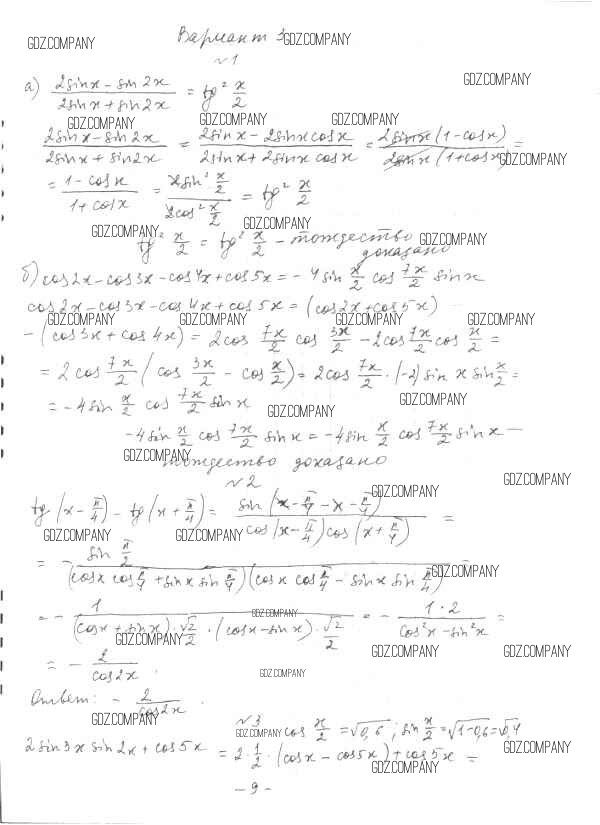 Вариант 1
N1
а) (2sinx − sin2x)/(2sinx + sin2x) = tg² x/2
(2sinx − sin2x)/(2sinx + sin2x) = (2sinx − 2sinxcosx)/(2sinx + 2sinx cosx) = (2sinx(1−cosx))/(2sinx(1+cosx)) =
= (1 − cosx)/(1 + cosx) = (2sin² x/2)/(2cos² x/2) = tg² x/2
tg² x/2 = tg² x/2 – тождество
доказано
б) cos2x − cos3x − cos4x + cos5x = −4sin x/2 cos 7x/2 sinx
cos2x − cos3x − cos4x + cos5x = (cos2x + cos5x)
− (cos3x + cos4x) = 2cos 7x/2 cos 3x/2 − 2cos 7x/2 cos x/2 =
= 2cos 7x/2 (cos 3x/2 − cos x/2) = 2cos 7x/2 · (−2) sin x sin x/2 =
= −4sin x/2 cos 7x/2 sinx
−4sin x/2 cos 7x/2 sinx = −4sin x/2 cos 7x/2 sinx —
тождество доказано
N2
tg(x − π/4) − tg(x + π/4) = sin(x − π/4 − x − π/4)/(cos(x − π/4)cos(x + π/4)) =
= − sin π/2/((cosx cos π/4 + sinx sin π/4)(cosx cos π/4 − sinx sin π/4)) =
= − 1/((cosx + sinx)·√2/2 · (cosx − sinx)·√2/2) = − (1·2)/(cos²x − sin²x) =
= − 2/cos2x.
Ответ: − 2/cos2x.
N3
cos x/2 = √0,6 ; sin x/2 = √1−0,6 = √0,4
2sin3x sin2x + cos5x = 2·1/2·(cosx − cos5x) + cos5x =
− 9 −
GDZ.COMPANY